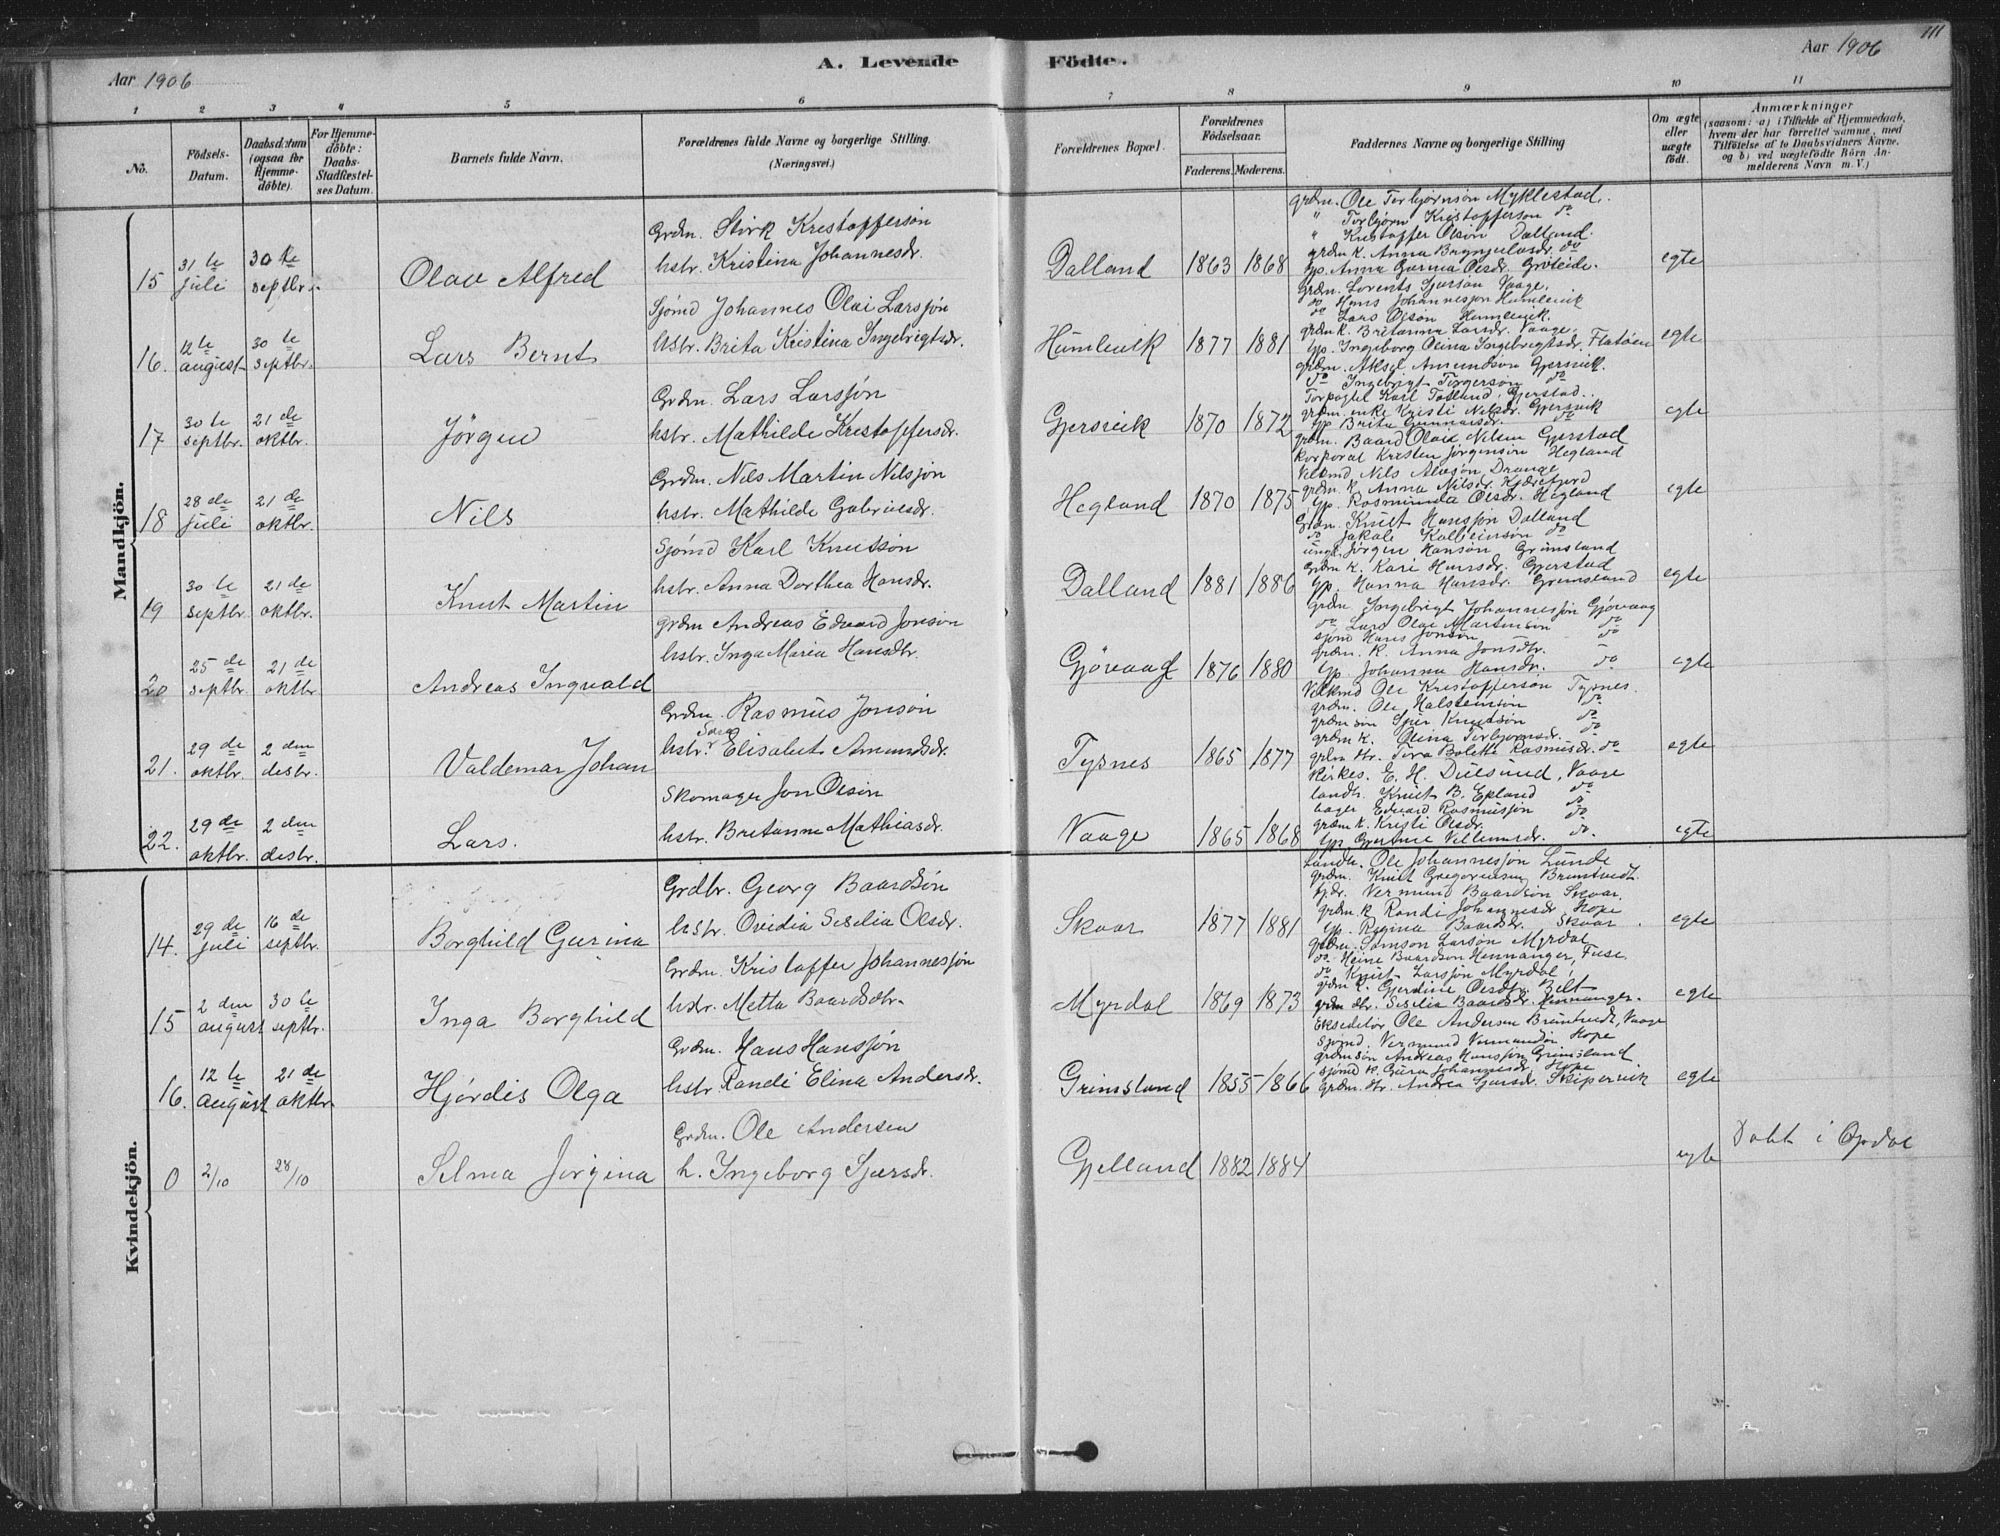 Aar 1906
A. Levende
Födte.
Aar 1906
111
1 2 3 4 5 6 7 8 9 10 11
No.
Födsels-Datum.
Daabsdatum (ogsaa for Hjemmedöbte).
For Hjemmedöbte: Daabs-Stadfæstelses Datum.
Barnets fulde Navn.
Forældrenes fulde Navne og borgerlige Stilling.
(Næringsvei.)
Forældrenes Bopæl.
Forældrenes Födselsaar.
Faderens. Moderens.
Faddernes Navne og borgerlige Stilling
Om ægte eller uægte födt.
Anmærkninger
(saasom: a) i Tilfælde af Hjemmedaab, hvem der har forrettet samme, med Tilföielse af to Daabsvidners Navne, og b) ved uægtefödte Börn Anmelderens Navn m. V.)
Mandkjön.
15 31te juli 30te septbr. Olav Alfred
Grdm. Stirk Kristoffersøn
hstr. Kristina Johannesdr.
Dalland 1863 1868 egte
grdm. Ole Torbjørnsøn Myklestad.
" Torbjørn Kristofferson do
" Kristoffer Olsøn Dalland
grdm k. Anna Brynjelvsdr. do
gp. Anna Gurina Olsdr. Groteide.
16. 12te august 30te septbr. Lars Bernt
Sjømd Johannes Olai Larssøn
hstr. Brita Kristina Ingebrigtsdr.
Humlevik 1877 1881 egte
grdm. Lorents Sjurson Vaage.
do Hans Johannesson Humlevik
do Lars Olson Humlevik.
grdm k. Britanna Larsdr. Vaage.
gp. Ingeborg Olina Ingebrigtsdr. Flatøen
17 30te septbr. 21de oktbr. Jörgen
Grdm. Lars Larssøn
hstr. Mathilde Kristoffersdr.
Gjersvik 1870 1872 egte
grdm. Aksel Amundsøn Gjersvik.
do Ingebrigt Torgerson do
grdm. enke Kristi Nilsdr. Gjersvik
gp Brita Gunnarsdr. do
18 28de juli 21de oktbr. Nils
Grdm. Nils Martin Nilssøn
hstr. Mathilde Gabrielsdr.
Hegland 1870 1875 egte
grdm. Baard Olai Nilsen Gjerstad
Korporal Kristen Jørgensøn Hegland
grdm. k. Anna Nilsdr.
gp. Rasmunda Olsdr. Hegland
19 30te septbr. 21de oktbr. Knut Martin
Sjømd Karl Knutsøn
hstr. Anna Dorthea Hansdr.
Dalland 1881 1886 egte
Grdm. Knut Hanssøn Dalland
ungk. Jørgen Hansøn Grimsland
grdm k. Kari Hansdr. Gjerstad
gp. Hanna Hansdr. Grimsland
20 25de septbr. 21de oktbr. Andreas Ingvald
grdm Andreas Edvard Jonsøn
hstr. Inga Maria Hansdtr.
Gjøvaag 1876 1880 egte
grdm Ingebrigt Johannessøn Gjøvaag
do Lars Olai Martinsøn do
sjømd Hans Jonsøn do
grdm. k. Anna Jonsdtr.
gp. Johanna Hansdr. do
21. 29de oktbr. 2den desbr. Valdemar Johan
Grdm. Rasmus Jonsøn
hstr. Elisabet Amundsdr.
Tysnes 1865 1877 egte
Ole Kristoffersøn Tysnes.
grdm. Ole Halsteinsøn do
grdm søn Sjur Knutsøn do
grdm k. Olina Torbjørnsdr. do
22. 29de oktbr. 2den desbr. Lars.
Skomager Jon Olsøn
hstr. Britanna Mathiasdr.
Vaage 1865 1868 egte
Kirkes. E. H. Dulsund, Vaage
landh. Knut B. Epland do
bager Edvard Rasmussøn do
grdm k. Kristi Olsdr. do
gp. Gjertine Villumsdr. do.
Kvindekjön.
14. 29de juli 16de septbr. Borghild Gurina
Grdbr. Georg Baardsøn
hstr. Ovidia Siselia Olsdr.
Skaar 1877 1881 egte
Landh. Ole Johannessøn Lunde
grdm. Knut Gregoriussen Bruntvedt
Vermund Baardsøn Skaar.
grdm k Randi Johannesdr Hope
gp. Regina Baardsdr. Skaar.
15 2den august 30te septbr. Inga Borghild
Grdm. Kristoffer Johannessøn
hstr. Metta Baardsdtr.
Myrdal 1869 1873 egte
grdm. Samson Larsøn Myrdal
do Heine Baardsøn Hennanger, Fuse
do Knut Larssøn Myrdal,
grdm k. Gjerdine Olsdtr. Belt
grdm dtr. Siselia Baardsdr. Hennanger.
16. 12te august 21de oktbr. Hjørdis Olga
Grdm. Hans Hanssøn
hstr. Randi Elina Andersdr.
Grimsland 1855 1866 egte
Ekseditør Ole Andersen Bruntvedt, Vaage
Sjømd. Vermund Vermundsøn Hope
grdm søn Andreas Hanssøn Grimsland
sjømd k. Gura Johannesdr. Hope
grdm. dtr. Andrea Sjursdr. Skipervik
0 2/10 28/10 Selma Jørgina
Grdm. Ole Andersen
h. Ingeborg Sjursdr.
Gjelland 1882 1884 egte
Døbt i Opdal